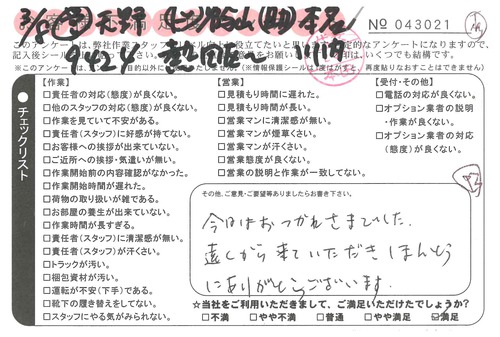 No 043021
このアンケートは、弊社作業スタッフの
定期的なアンケートになりますので、
記入後シール
印は、いくつでも結構です。
(※このアンケート
目的以外に
(※情報保護シールは一度はがすと、再度貼りなおすことはできません)
●チェックリスト
【作業】
□責任者の対応(態度)が良くない。
□他のスタッフの対応(態度)が良くない。
□作業を見ていて不安がある。
□責任者(スタッフ)に好感が持てない。
□お客様への挨拶が出来ていない。
□ご近所への挨拶・気遣いが無い。
□作業開始前の内容確認がなかった。
□作業開始時間が遅れた。
□荷物の取り扱いが雑である。
□お部屋の養生が出来ていない。
□作業時間が長すぎる。
□責任者(スタッフ)に清潔感が無い。
□責任者(スタッフ)が汗くさい。
□トラックが汚い。
□梱包資材が汚い。
□運転が不安(下手)である。
□靴下の履き替えをしてない。
□スタッフにやる気がみられない。
【営業】
□見積もり時間に遅れた。
□見積もり時間が長い。
□営業マンに清潔感が無い。
□営業マンが煙草くさい。
□営業マンが汗くさい。
□営業態度が良くない。
□営業の説明と作業が一致してない。
【受付・その他】
□電話の対応が良くない。
□オプション業者の説明
・作業が良くない。
□オプション業者の対応
(態度)が良くない。
その他、ご意見・ご要望等ありましたらお書き下さい。
今日はおつかれさまでした。
遠くから来ていただきほんとう
にありがとうございます。
☆当社をご利用いただきまして、ご満足いただけたでしょうか?
□不満 □やや不満 □普通 □やや満足 ☑満足